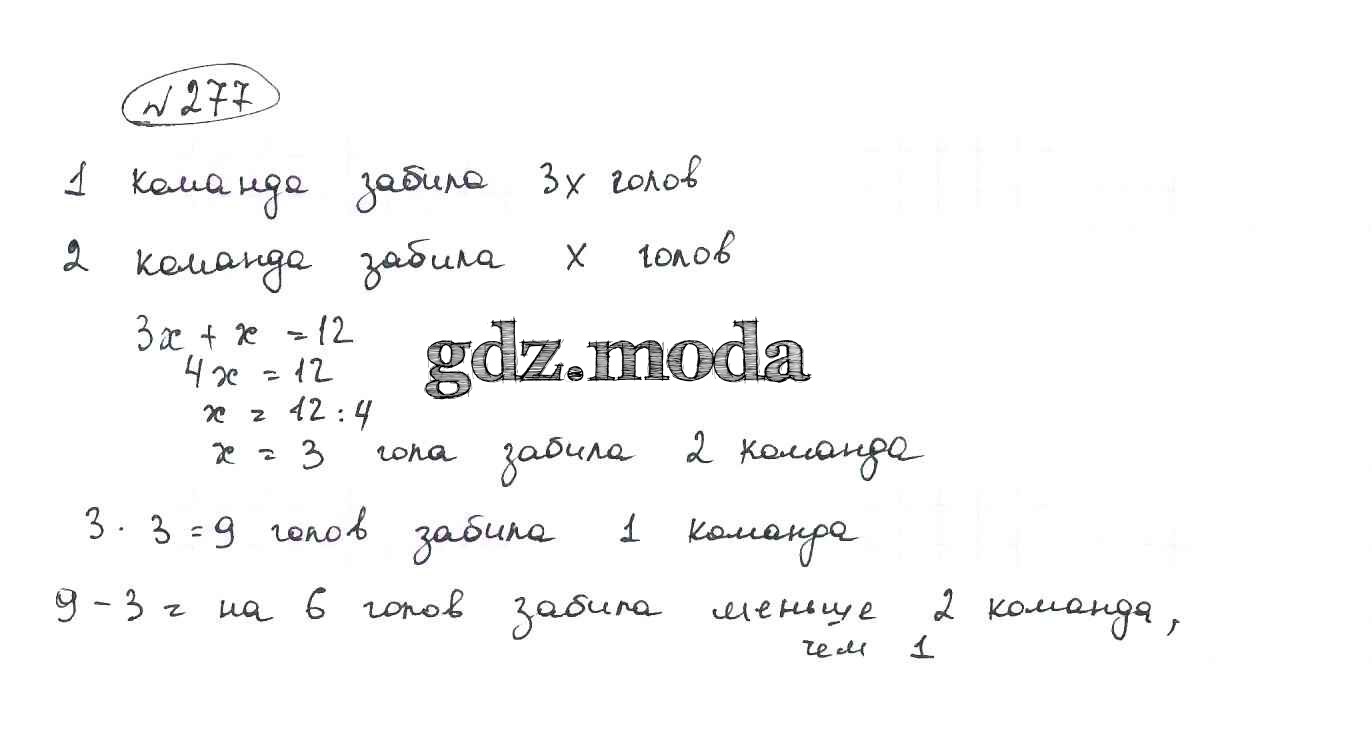 № 277
1 команда забила 3х голов
2 команда забила х голов
3х + х = 12
gdz.moda
4х = 12
х = 12 : 4
х = 3 гола забила 2 команда
3 · 3 = 9 голов забила 1 команда
9 - 3 = на 6 голов забила меньше 2 команда,
чем 1